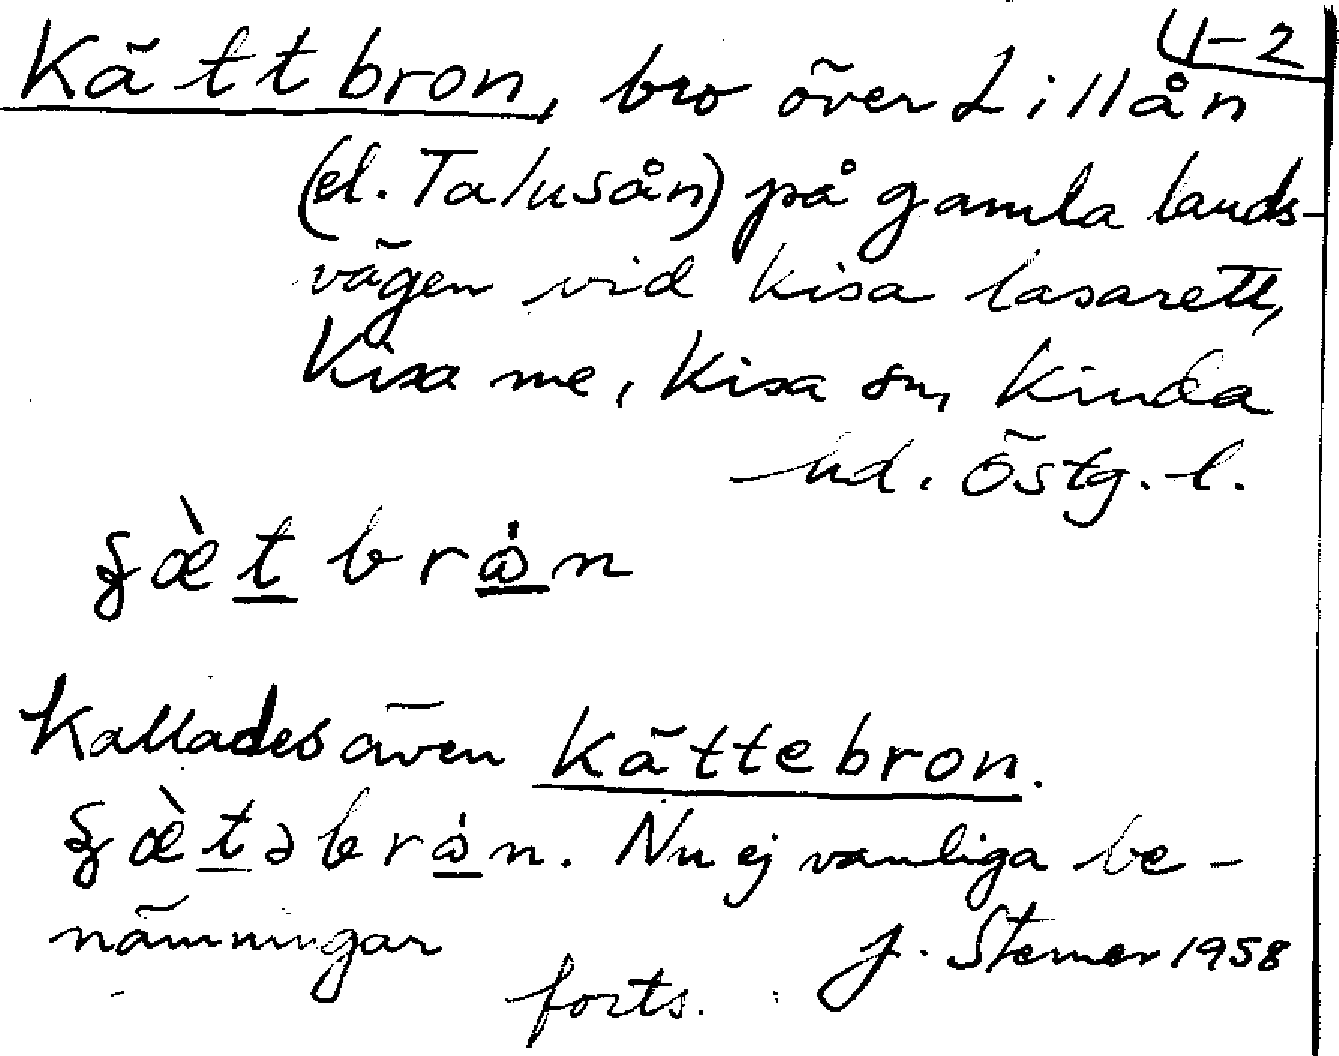 4-2
Kättbron, bro över Lillån
(el. Talusån) på gamla lands-
vägen vid Kisa lasarett,
Kisa me, Kisa sn, Kinda
hd. Östg. l.
Kallades även Kättebron.
Nu ej vanliga be-
nämningar
J. Sterner 1958
forts.